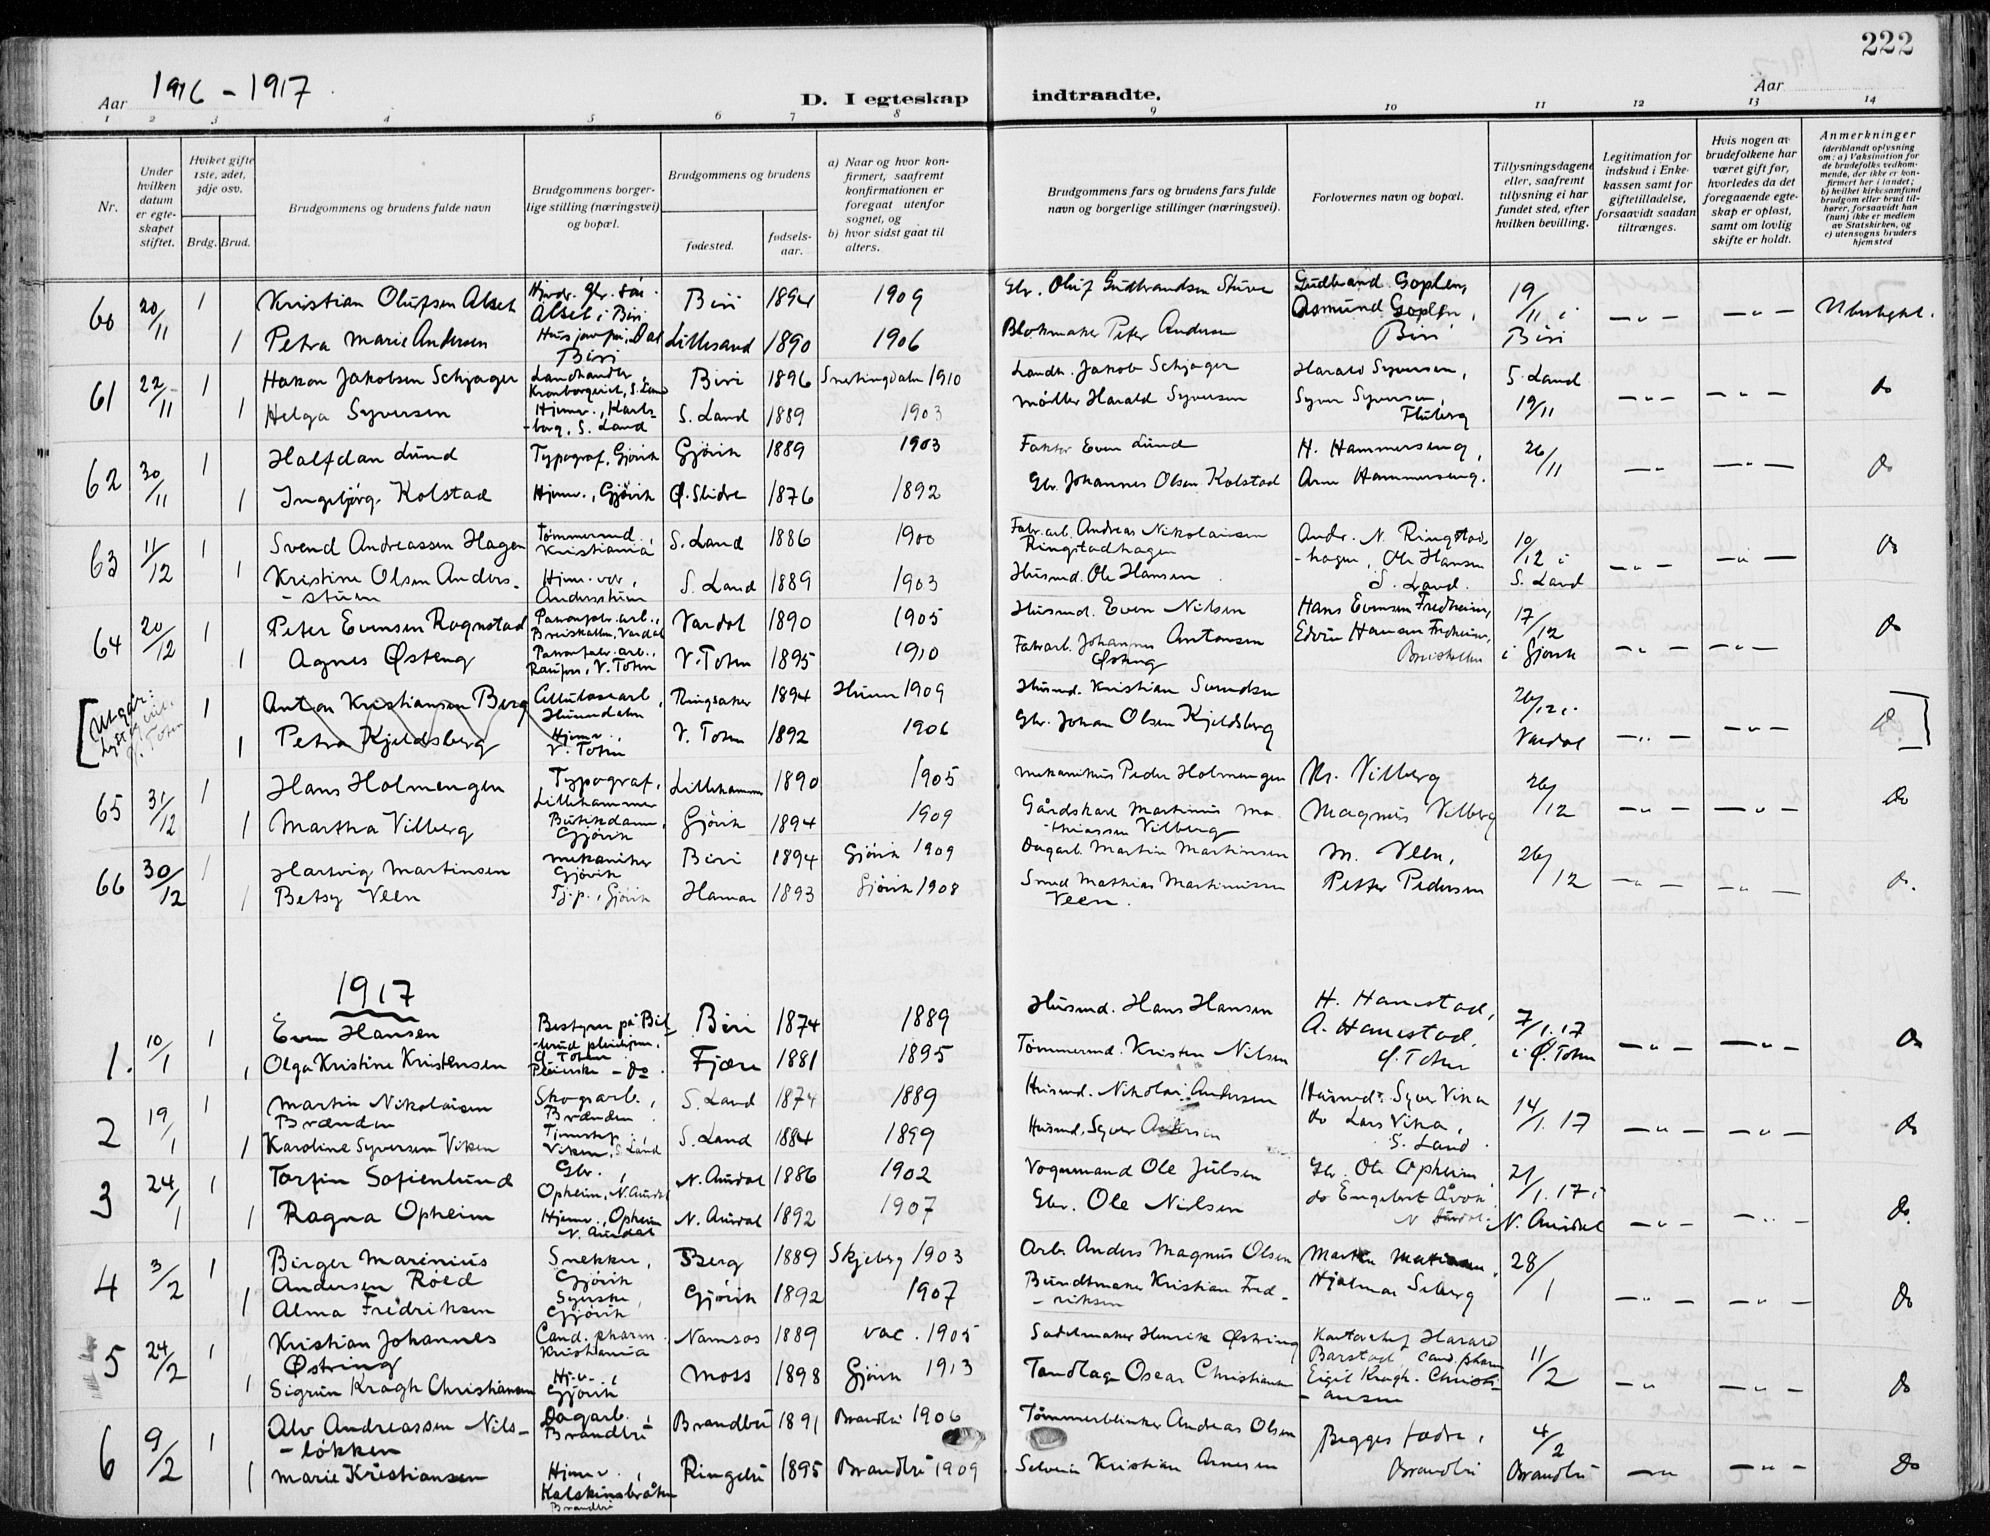 222
Aar 1916 - 1917.
D. I egteskap indtraadte.
Aar
1 2 3 4 5 6 7 8 9 10 11 12 13 14
Nr.
Under hvilken datum er egteskapet stiftet.
Hviket gifte 1ste, 2det, 3dje osv.
Brdg. Brud.
Brudgommens og brudens fulde navn
Brudgommens borgerlige stilling (næringsvei) og bopæl.
Brudgommens og brudens
fødested.
fødselsaar.
a) Naar og hvor konfirmert, saafremt konfirmationen er foregaat utenfor sognet, og
b) hvor sidst gaat til alters.
Brudgommens fars og brudens fars fulde navn og borgerlige stillinger (næringsvei).
Forlovernes navn og bopæl.
Tillysningsdagene eller, saafremt tillysning ei har fundet sted, efter hvilken bevilling.
Legitimation for indskud i Enkekassen samt for giftetilladelse, forsaavidt saadan tiltrænges.
Hvis nogen av brudefolkene har været gift før, hvorledes da det foregaaende egteskap er opløst, samt om lovlig skifte er holdt.
Anmerkninger
(deriblandt oplysning om: a) Vaksination for de brudefolks vedkommende, der ikke er konfirmert her i landet; b) hvilket kirkesamfund brudgom eller brud tilhører, forsaavidt han (hun) ikke er medlem av Statskirken, og c) utensogns bruders hjemsted
60 20/11 1 Kristian Olufsen Alset Alset i Biri Biri 1894 1909 Gbr. Oluf Gudbrandsen Gudbrand Goplen, Asmund Goplen, Biri 19/11 i Biri — " —
1 Petra Marie Andersen Biri Lillesand 1890 1906 Blokmaker Peter Andersen
61 22/11 1 Hakon Jakobsen Schjager Landhandler S. Land Biri 1896 Snertingdalen 1910 Landh. Jakob Schjager Harald Syversen, S. Land 19/11 — " — do
1 Helga Syversen Hjemv., Karlsborg, S. Land S. Land 1889 1903 Møller Harald Syversen Syver Syversen, Fluberg
62 30/11 1 Halfdan Lund Typograf, Gjøvik Gjøvik 1889 1903 Faktor Even Lund H. Hammerseng, 26/11 — " — do
1 Ingebjørg Kolstad Hjemv., Gjøvik Ø. Slidre 1876 1892 Gbr. Johannes Olsen Kolstad Arne Hammerseng.
63 11/12 1 Svend Andreassen Hagen Tømmermd., Kristiania S. Land 1886 1900 Fabr.arb. Andreas Nikolaisen Ringstadhagen Andr. N. Ringstadhagen, Ole Hansen S. Land. 10/12 i S. Land — " — do
1 Kristine Olsen Andersstuen Andersstuen S. Land 1889 1903 Husmd. Ole Hansen
64 20/12 1 Peter Evensen Rognstad Patronfabr.arb., Breiskallen, Vardal Vardal 1890 1905 Husmd. Even Nilsen Hans Evensen Fredheim, 17/12 i Gjøvik — " — do
1 Agnes Østeng Patronfabr. arb., Raufoss, V. Toten V. Toten 1895 1910 Fabrarb. Johannes Antonsen Østeng Edvin Hansen Fredheim, Breiskallen
[Utgår: 1 Anton Kristiansen Berg Cellulosearb., Hunndalen Ringsaker 1894 Hunn 1909 Husmd. Kristian Svendsen 26/12 i Vardal — " — do]
1 Petra Kjeldsberg Hjemv., V. Toten V. Toten 1892 1906 Gbr. Johan Olsen Kjeldsberg
65 31/12 1 Hans Holmengen Typograf, Lillehammer Lillehammer 1890 1905 Mekanikus Peder Holmengen Kr. Vilberg 26/12 — " — do
1 Martha Vilberg Butikdame, Gjøvik Gjøvik 1894 1909 Gårdskarl Martinus Mathiassen Vilberg Magnus Vilberg
66 30/12 1 Hartvig Martinsen Mekaniker Gjøvik Biri 1894 Gjøvik 1909 Dagarb. Martin Martinsen M. Veen, 26/12 — " — do.
1 Betsy Veen Tj.p., Gjøvik Hamar 1893 Gjøvik 1908 Smed Mathias Martinussen Veen. Petter Pedersen
1917
1. 10/1 1 Even Hansen Biri 1874 1889 Husmd. Hans Hansen H. Hanestad, 7/1.17 i Ø. Toten — " — do
1 Olga Kristine Kristensen Pleierske - do. Fjære 1881 1895 Tømmermd. Kristen Nilsen A. Hanestad, Ø. Toten
2 19/1 1 Martin Nikolaisen Brænden Skogsarb., Brænden S. Land 1874 1889 Husmd. Nikolai Andersen Husmd. Syver Viken 14/1.17 — " — do
1 Karoline Syversen Viken Viken, S. Land S. Land 1884 1899 Husmd. Syver Andersen do Lars Viken, S. Land.
3 24/1 1 Torfin Sofienlund Gbr., Opheim, N. Aurdal N. Aurdal 1886 1902 Vognmand Ole Julsen Gbr. Ole Opheim 21/1.17 i N. Aurdal — " — do.
1 Ragna Opheim Hjemv., Opheim N. Aurdal N. Aurdal 1892 1907 Gbr. Ole Nilsen do Engebret N. Aurdal.
4 3/2 1 Birger Marinius Andersen Röed Snekker, Gjøvik Berg 1889 Skjeberg 1903 Arb. Anders Magnus Olsen 28/1 — " — do
1 Alma Fredriksen Syerske, Gjøvik Gjøvik 1892 1907 Bundtmaker Kristian Fredriksen Hjalmar Seberg
5 24/2 1 Kristian Johannes Østring Cand. pharm. Kristiania Namsos 1889 vac. 1905 Sadelmaker Henrik Østring Kontorchef Harald Barstad 11/2 — " do
1 Sigrun Kragh Christiansen Hj.v., Gjøvik Moss 1898 Gjøvik 1913 Tandlæge Oscar Christiansen Cand. pharm Eigil Kragh-Christiansen
6 9/2 1 Alv Andreassen Nilsløkken Dagarb., Brandbu Brandbu 1891 Brandbu 1906 Tømmerblinker Andreas Olsen Begges fædre, Brandbu 4/2 Brandbu — " — do
1 Marie Kristiansen Hjemv., Kalskinsbråten Brandbu Ringebu 1895 Brandbu 1909 Kristian Arnesen